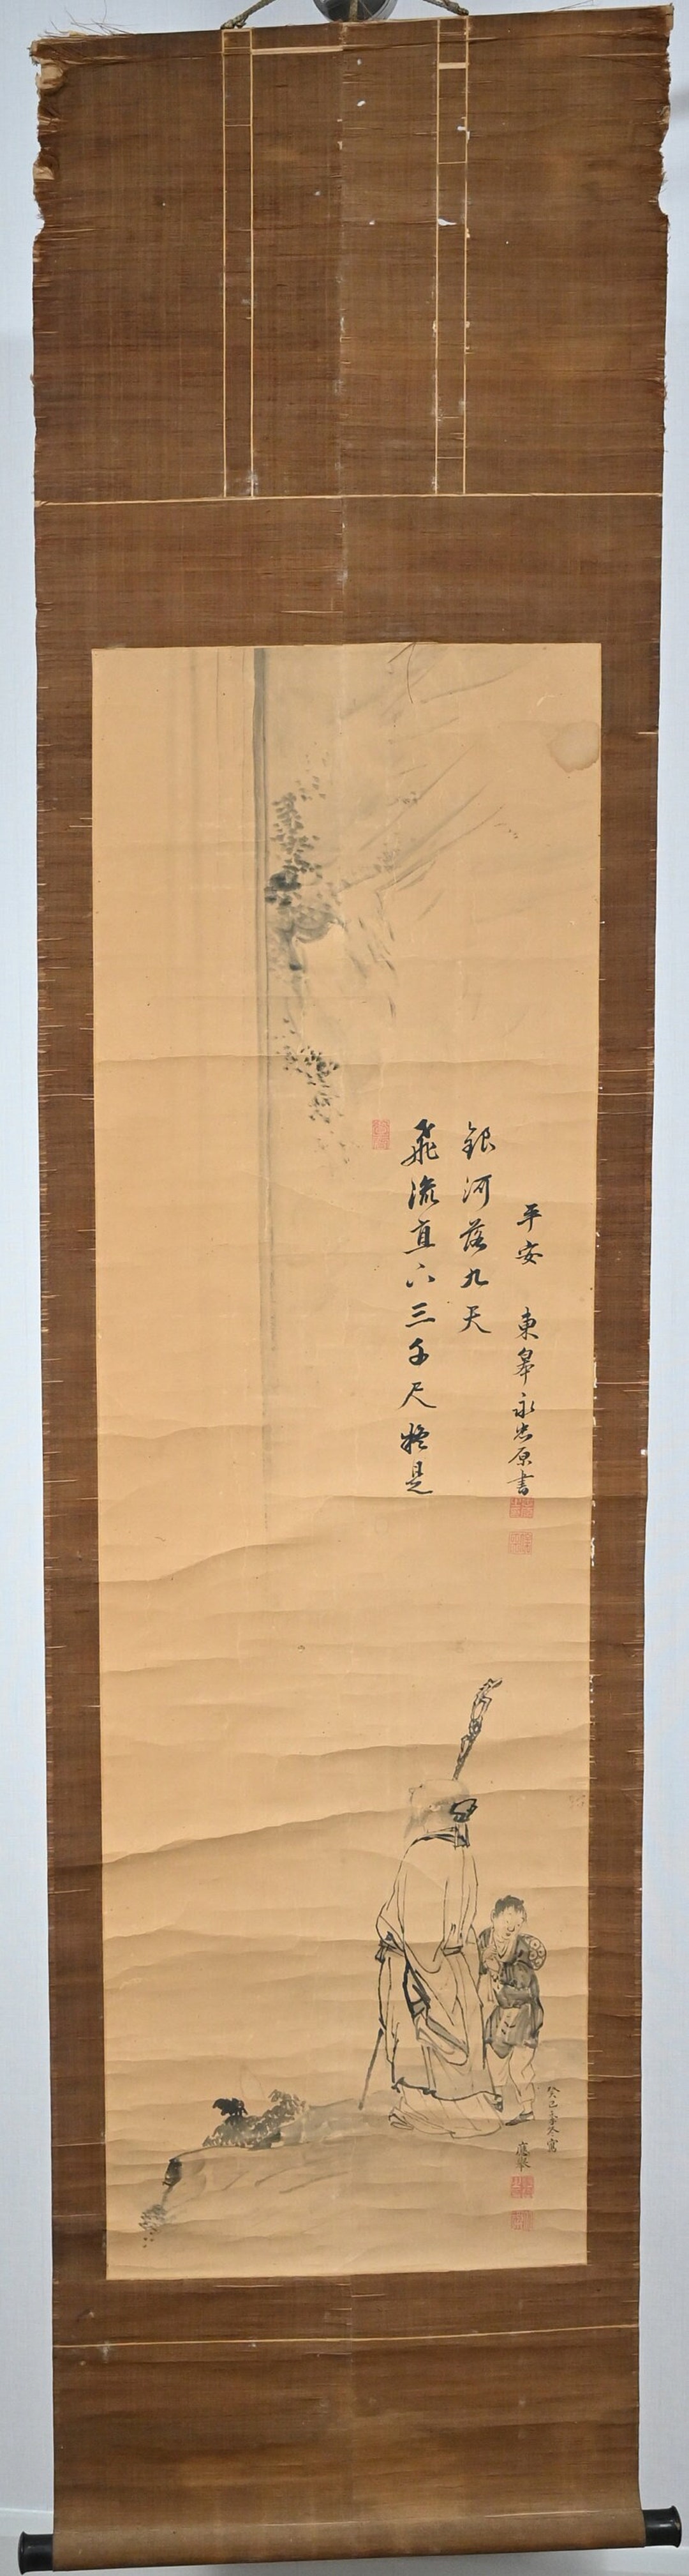 飛流直下三千尺疑是
銀河落九天
平安 東皐永忠原書
癸巳季冬寫
應舉